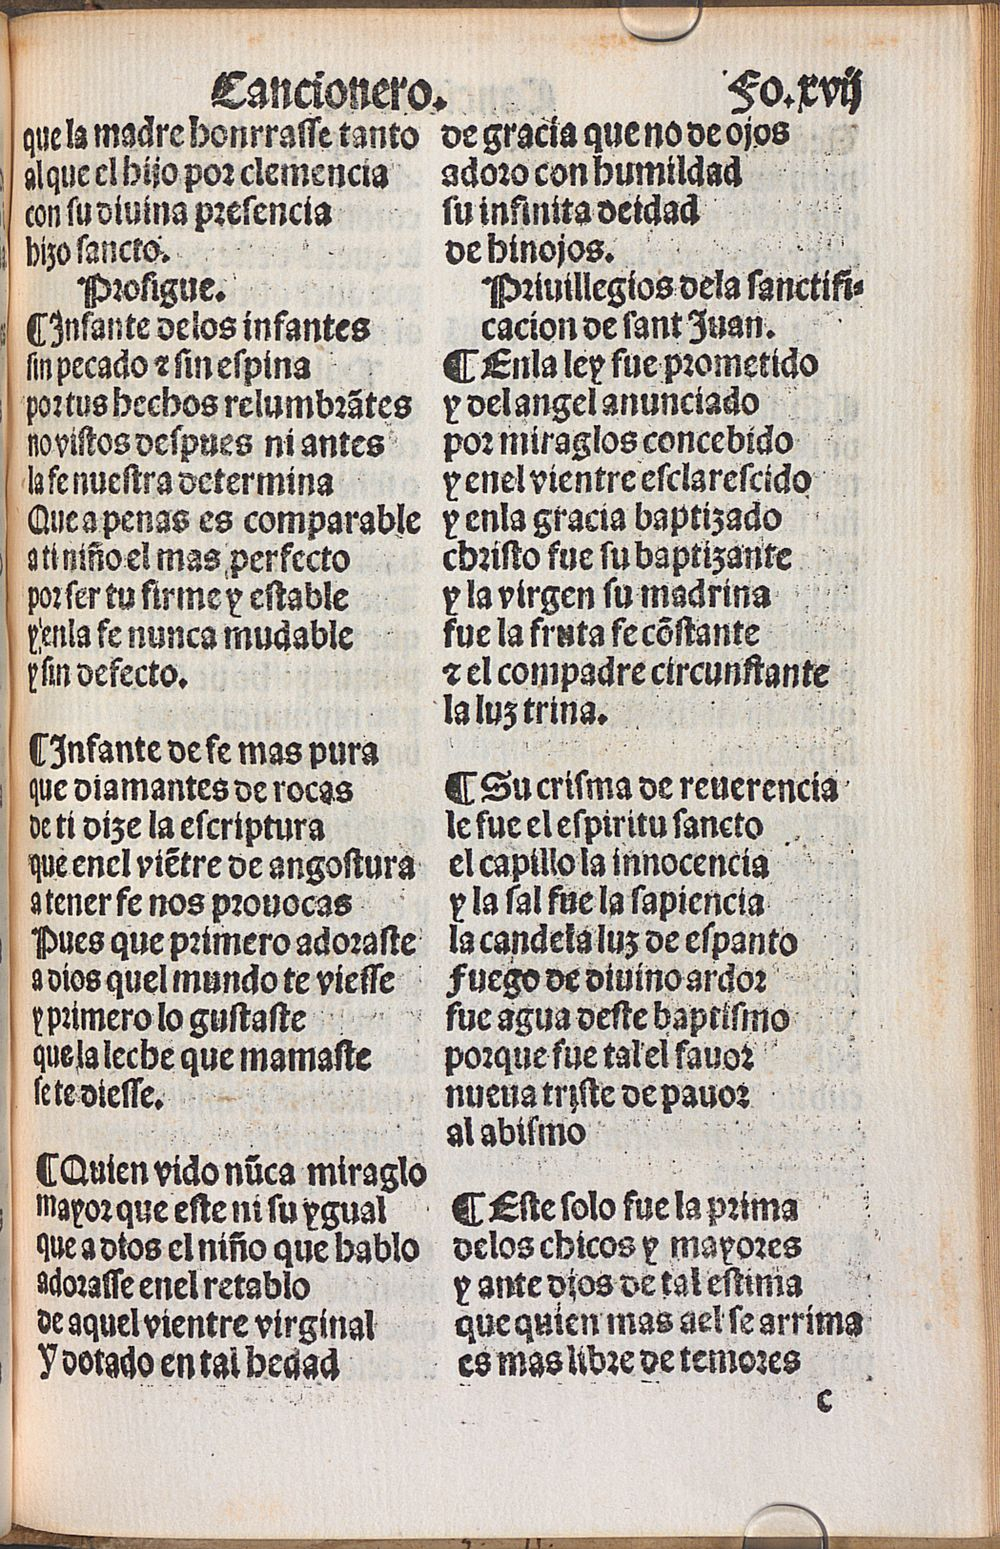 Cancionero. Fo.xvij
que la madre honrrasse tanto
al que el hijo por clemencia
con su diuina presencia
hizo sancto.
Prosigue.
¶Infante delos infantes
sin pecado ⁊ sin espina
por tus hechos relumbrãtes
no vistos despues ni antes
la fe nuestra determina
Que a penas es comparable
a ti niño el mas perfecto
por ser tu firme y estable
y enla fe nunca mudable
y sin defecto.
¶Infante de fe mas pura
que diamantes de rocas
de ti dize la escriptura
que enel viẽtre de angostura
a tener fe nos prouocas
Pues que primero adoraste
a dios quel mundo te viesse
y primero lo gustaste
que la leche que mamaste
se te diesse.
¶Quien vido nũca miraglo
mayor que este ni su ygual
que a dios el niño que hablo
adorasse enel retablo
de aquel vientre virginal
Y dotado en tal hedad
de gracia que no de ojos
adoro con humildad
su infinita deidad
de hinojos.
Priuillegios dela sanctifi-
cacion de sant Juan.
¶Enla ley fue prometido
y del angel anunciado
por miraglos concebido
y enel vientre esclarescido
y enla gracia baptizado
christo fue su baptizante
y la virgen su madrina
fue la fruta fe cõstante
⁊ el compadre circunstante
la luz trina.
¶Su crisma de reuerencia
le fue el espiritu sancto
el capillo la innocencia
y la sal fue la sapiencia
la candela luz de espanto
fuego de diuino ardor
fue agua deste baptismo
porque fue tal el fauor
nueua triste de pauor
al abismo
¶Este solo fue la prima
delos chicos y mayores
y ante dios de tal estima
que quien mas ael se arrima
es mas libre de temores
c